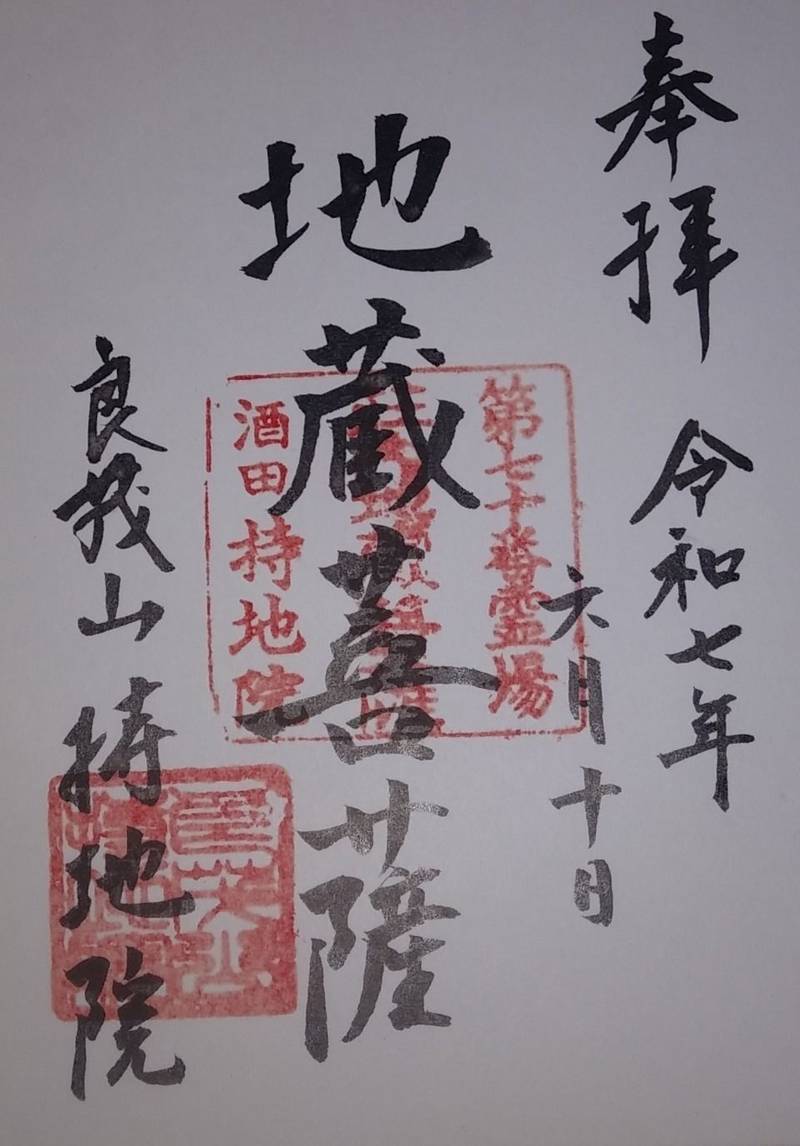 奉拝 令和七年
六月十日
地蔵菩薩
良茂山 持地院
第七十番霊場
酒田 持地院